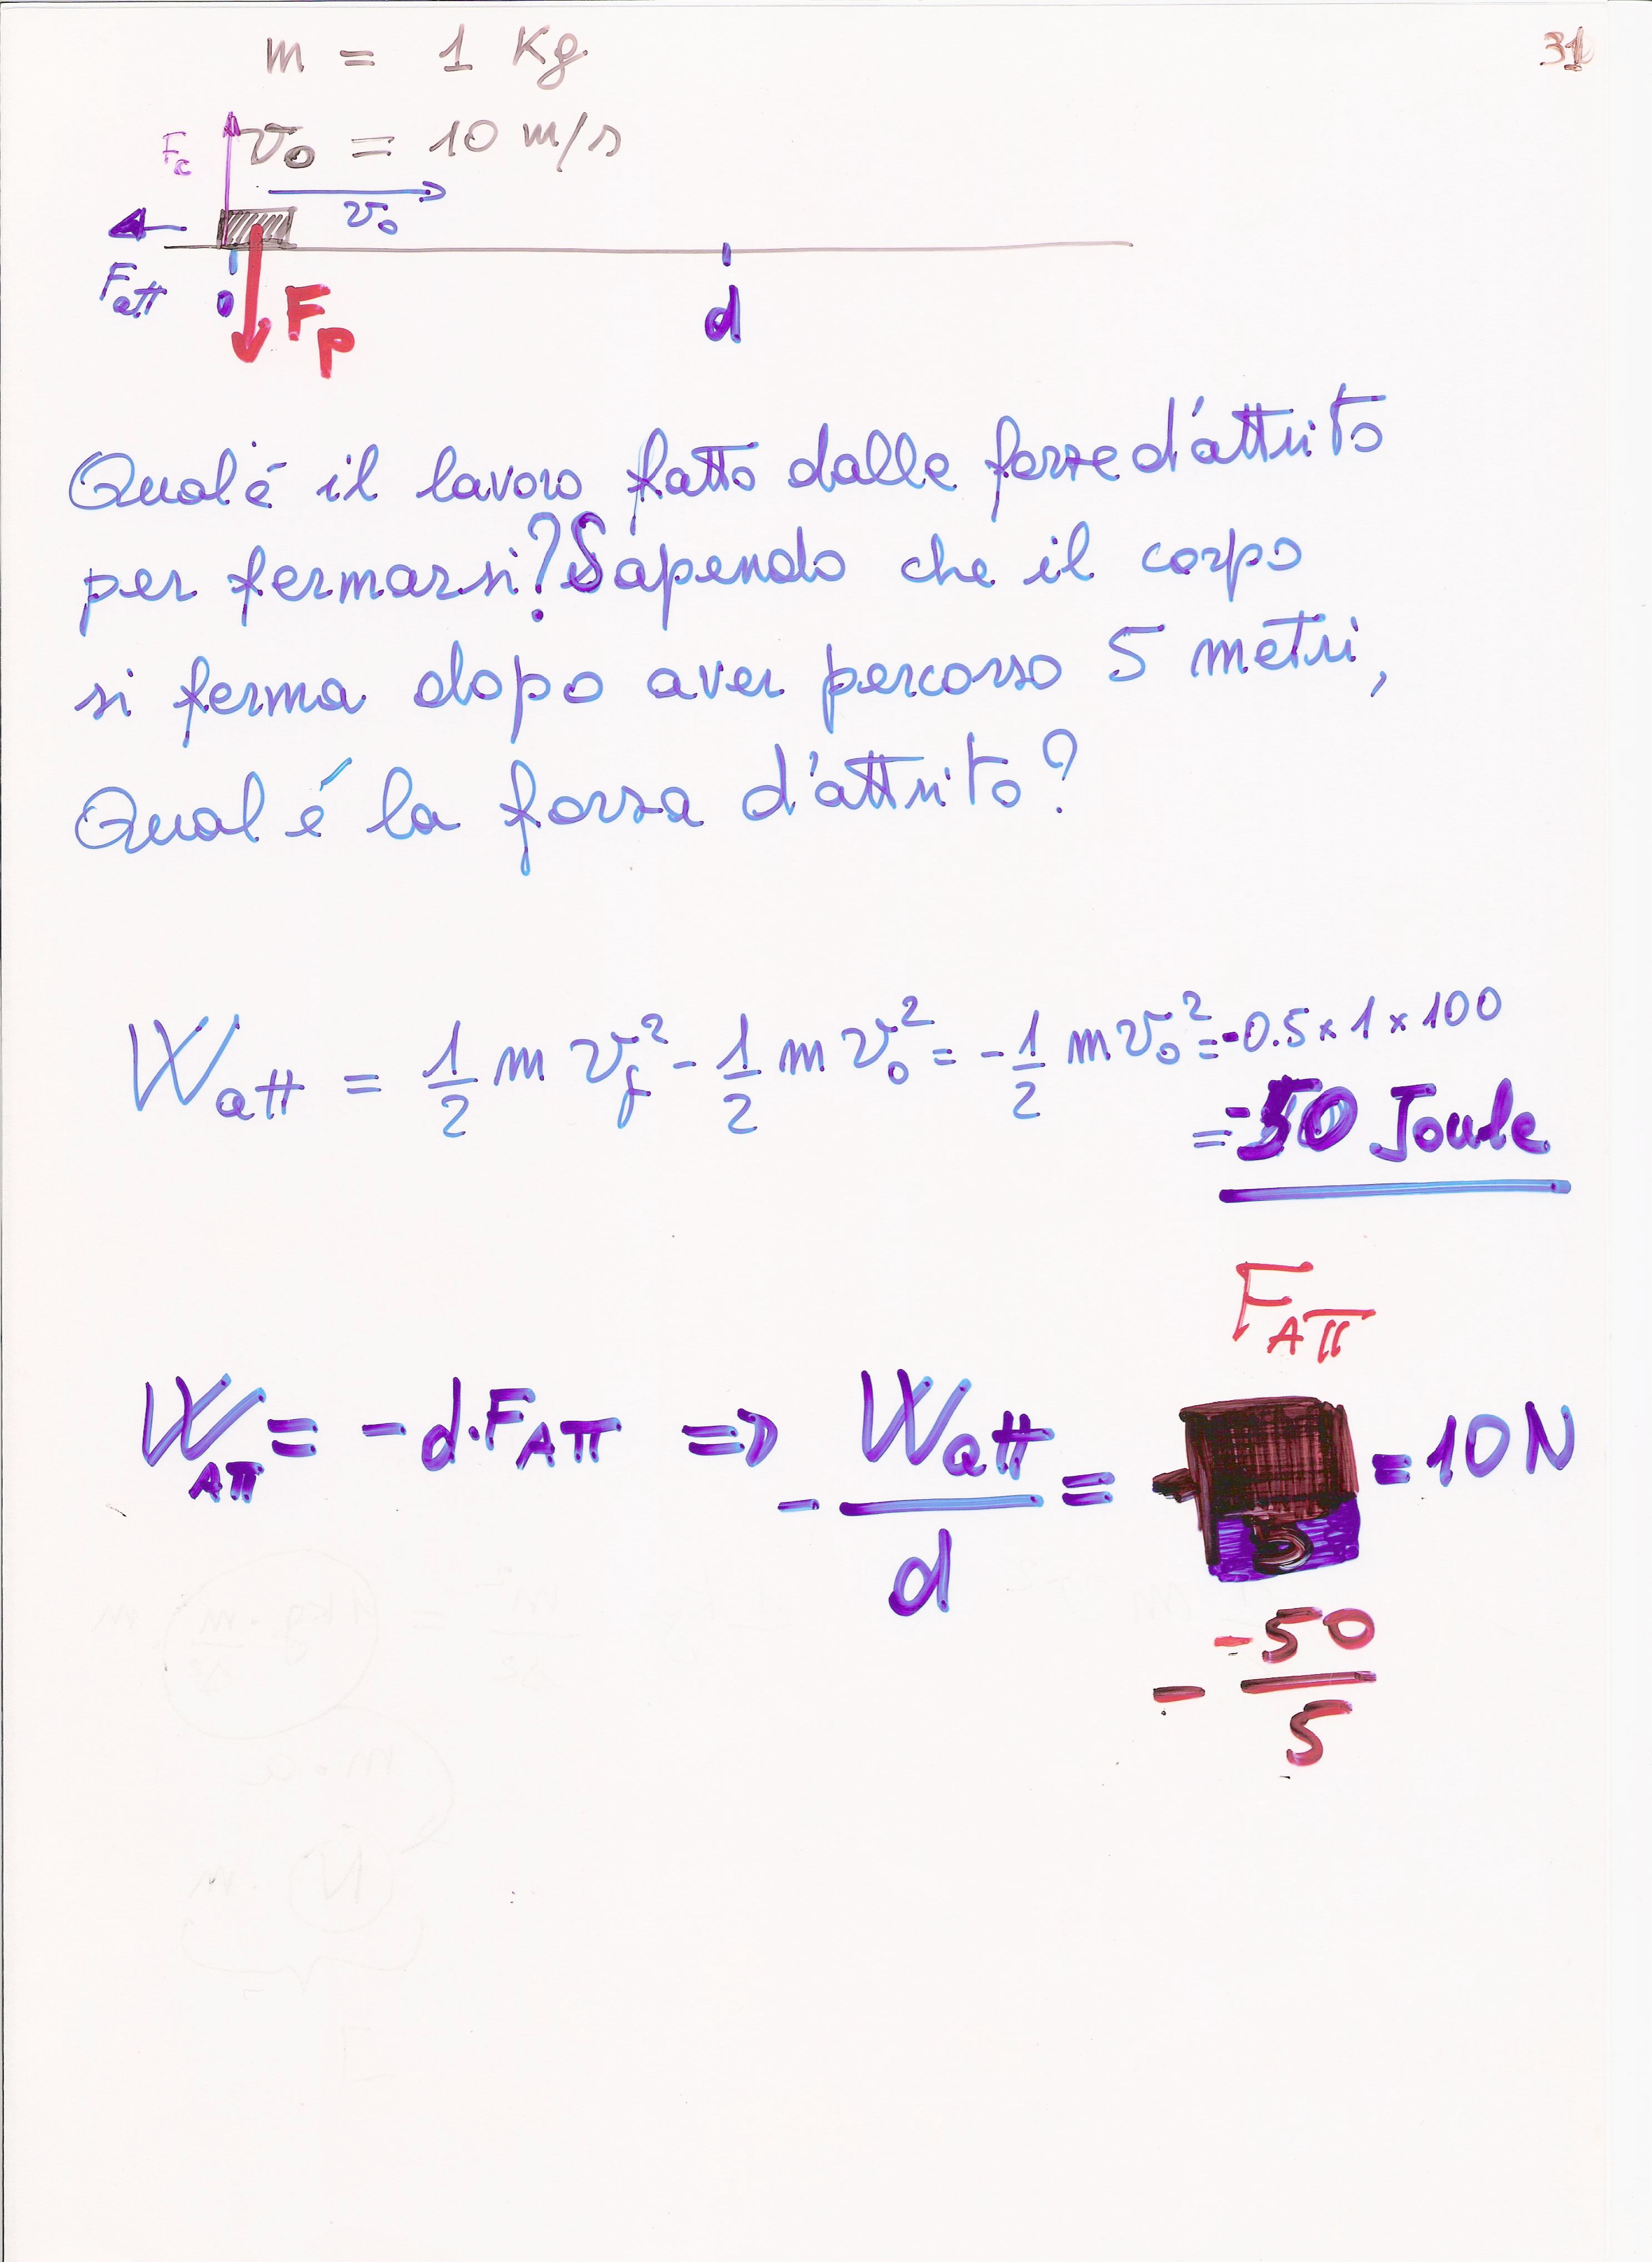 31
m = 1 Kg
v₀ = 10 m/s
Fc
v₀
Fatt
0
Fp
d
Qual'é il lavoro fatto dalle forze d'attrito
per fermarsi? Sapendo che il corpo
si ferma dopo aver percorso 5 metri,
Qual é la forza d'attrito?
Watt = 1/2 m vf² - 1/2 m v₀² = - 1/2 m v₀² = -0.5 x 1 x 100
= -50 Joule
FATT
WATT = - d·FATT => - Watt/d = 5 = 10 N
- -50/5